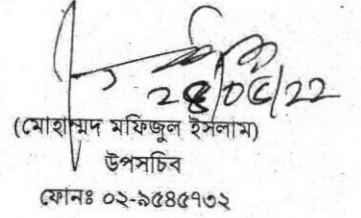 ২৪/০৫/২২
(মোহাম্মদ মফিজুল ইসলাম)
উপসচিব
ফোনঃ ০২-৯৫৪৫৭৩২